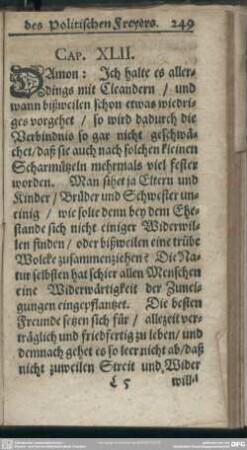 des Politischen Freyers. 249
CAP. XLII.
DAmon: Ich halte es aller-
dings mit Cleandern / und
wann bißweilen schon etwas wiedri-
ges vorgehet / so wird dadurch die
Verbindnis so gar nicht geschwä-
chet / daß sie auch nach solchen kleinen
Scharmützeln mehrmals viel fester
worden. Man sihet ja Eltern und
Kinder / Brüder und Schwester un-
einig / wie solte denn bey dem Ehe-
stande sich nicht einiger Widerwil-
len finden / oder bißweilen eine trübe
Wolcke zusammenziehen? Die Na-
tur selbsten hat schier allen Menschen
eine Widerwärtigkeit der Zunei-
gungen eingepflantzet. Die besten
Freunde setzen sich für / allezeit ver-
träglich und friedfertig zu leben / und
demnach gehet es so leer nicht ab / daß
nicht zuweilen Streit und Wider
L 5 will-